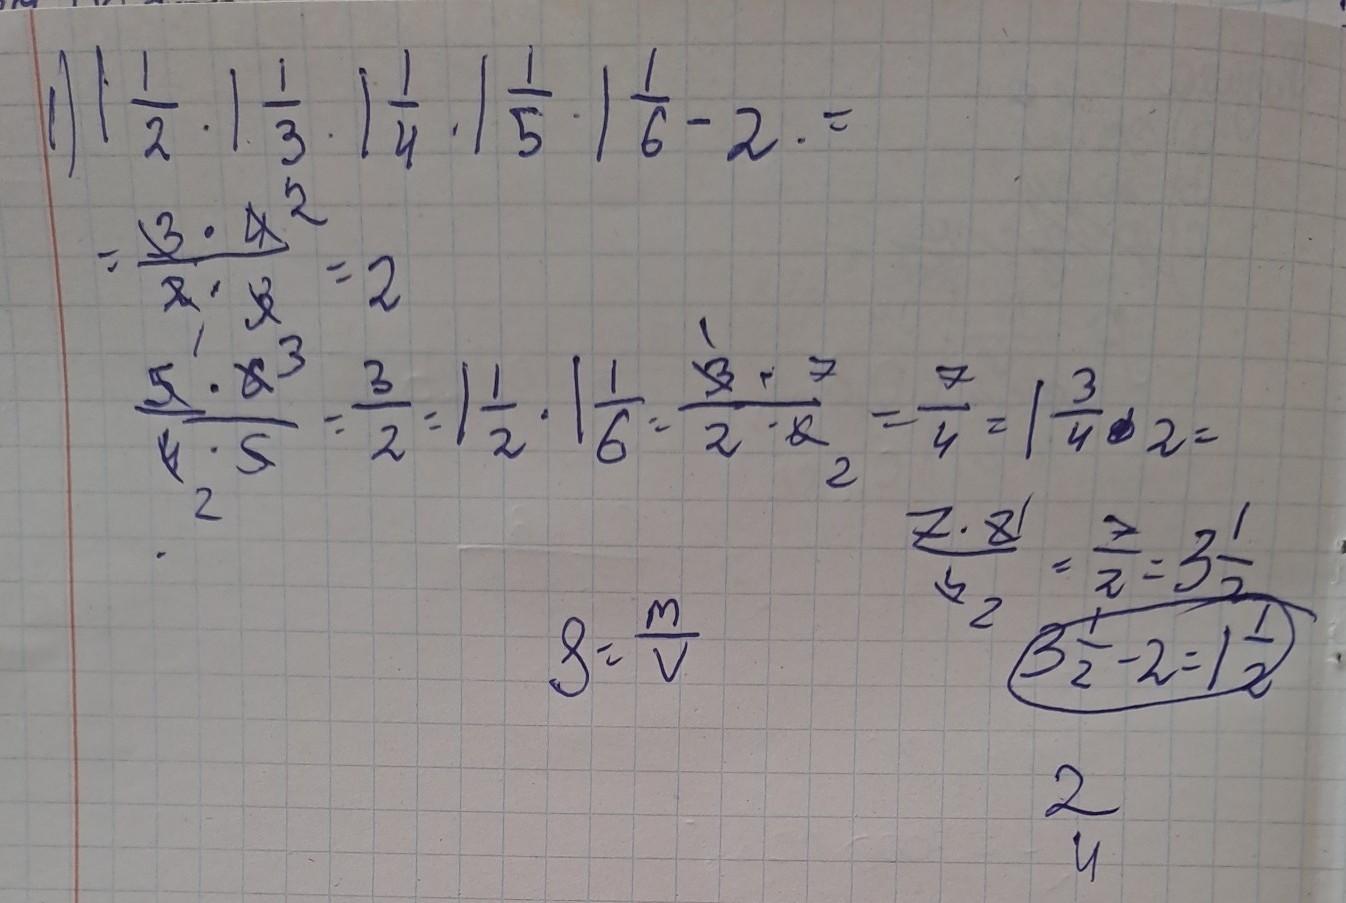 1) 1 1/2 · 1 1/3 · 1 1/4 · 1 1/5 · 1 1/6 - 2. =
= 3 · 4 2 / 2 · 3 = 2
5 1 · 6 3 / 4 2 · 5 = 3/2 = 1 1/2 · 1 1/6 = 3 1 · 7 / 2 · 6 2 = 7/4 = 1 3/4 · 2 =
7 · 2 1 / 4 2 = 7/2 = 3 1/2
ρ = m/V
3 1/2 - 2 = 1 1/2
2/4